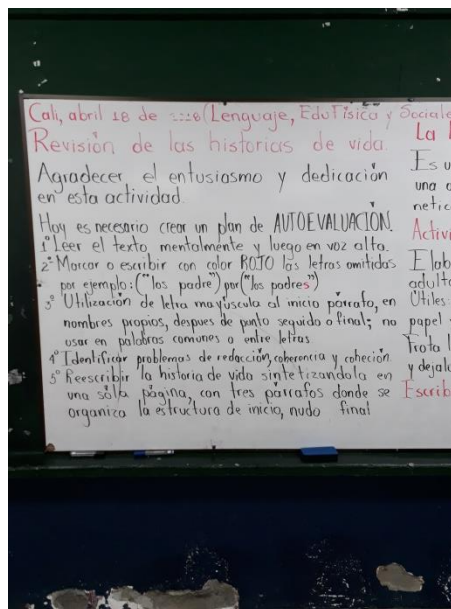 Cali, abril 18 de (Lenguaje, EduFisica y Sociale
Revisión de las historias de vida.
Agradecer el entusiasmo y dedicación
en esta actividad.
Hoy es necesario crear un plan de AUTOEVALUACIÓN.
1° Leer el texto mentalmente y luego en voz alta.
2° Marcar o escribir con color ROJO las letras omitidas
por ejemplo: ("los padre") por ("los padres")
3° Utilización de letra mayúscula al inicio párrafo, en
nombres propios, despues de punto seguido o final; no
usar en palabras comunes o entre letras.
4° Identificar problemas de redacción, coherencia y coheción.
5° Reescribir la historia de vida sintetizandola en
una sóla página, con tres párrafos donde se
organiza la estructura de inicio, nudo final
La
Es u
una
netic
Activi
Elab
adulto
Útiles:
papel
Frota l
y dejalo
Escrib